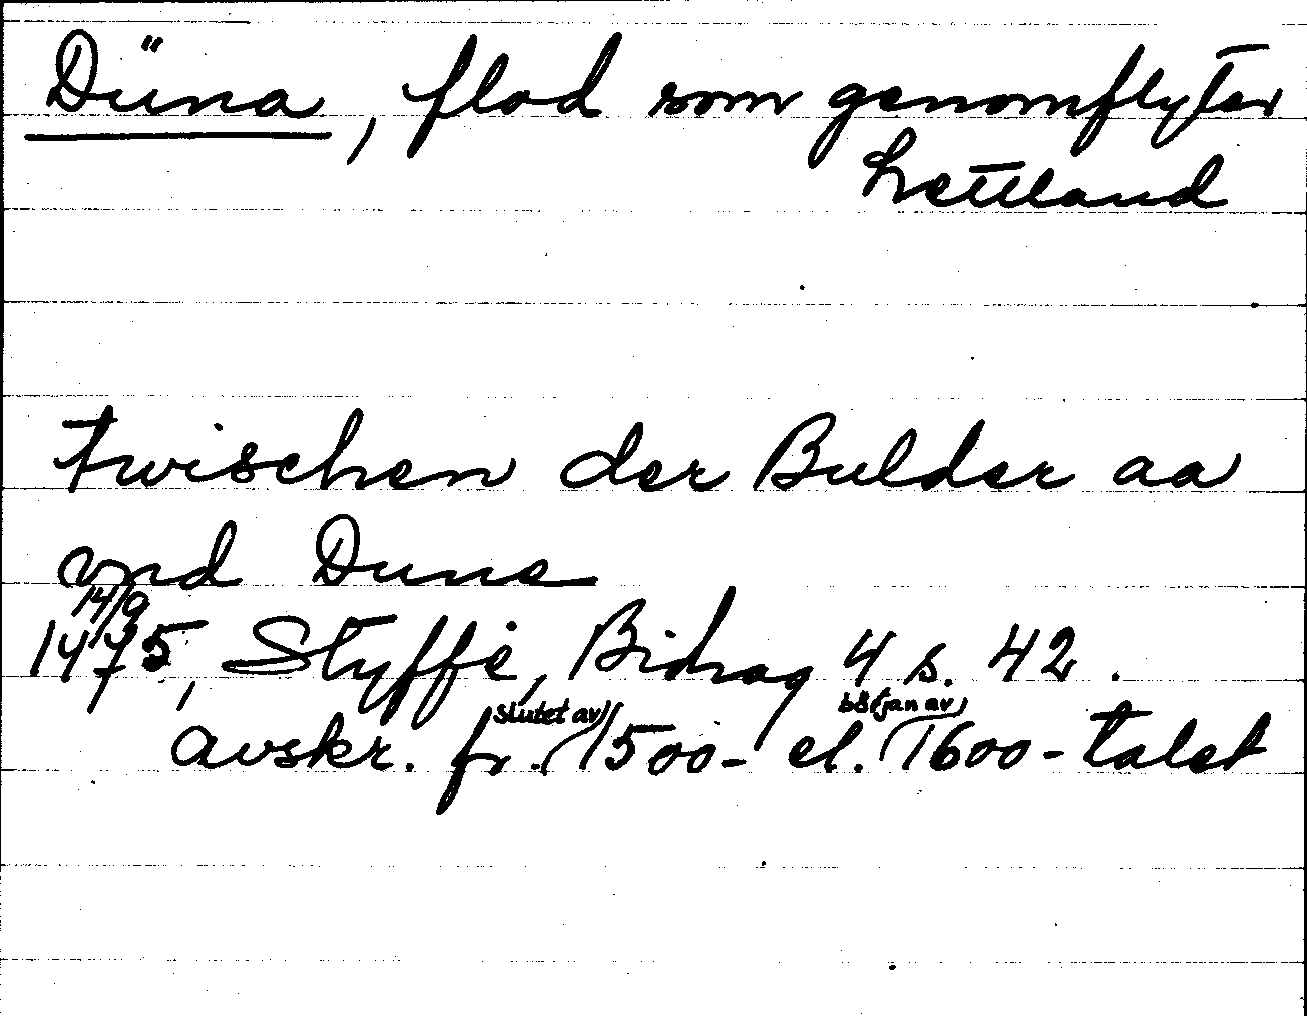 Düna, flod som genomflyter
Lettland
twischen der Bulder aa
vnd Duna
14/9
1475, Styffe, Bidrag 4 s. 42.
slutet av början av
avskr. fr. 1500- el. 1600-talet